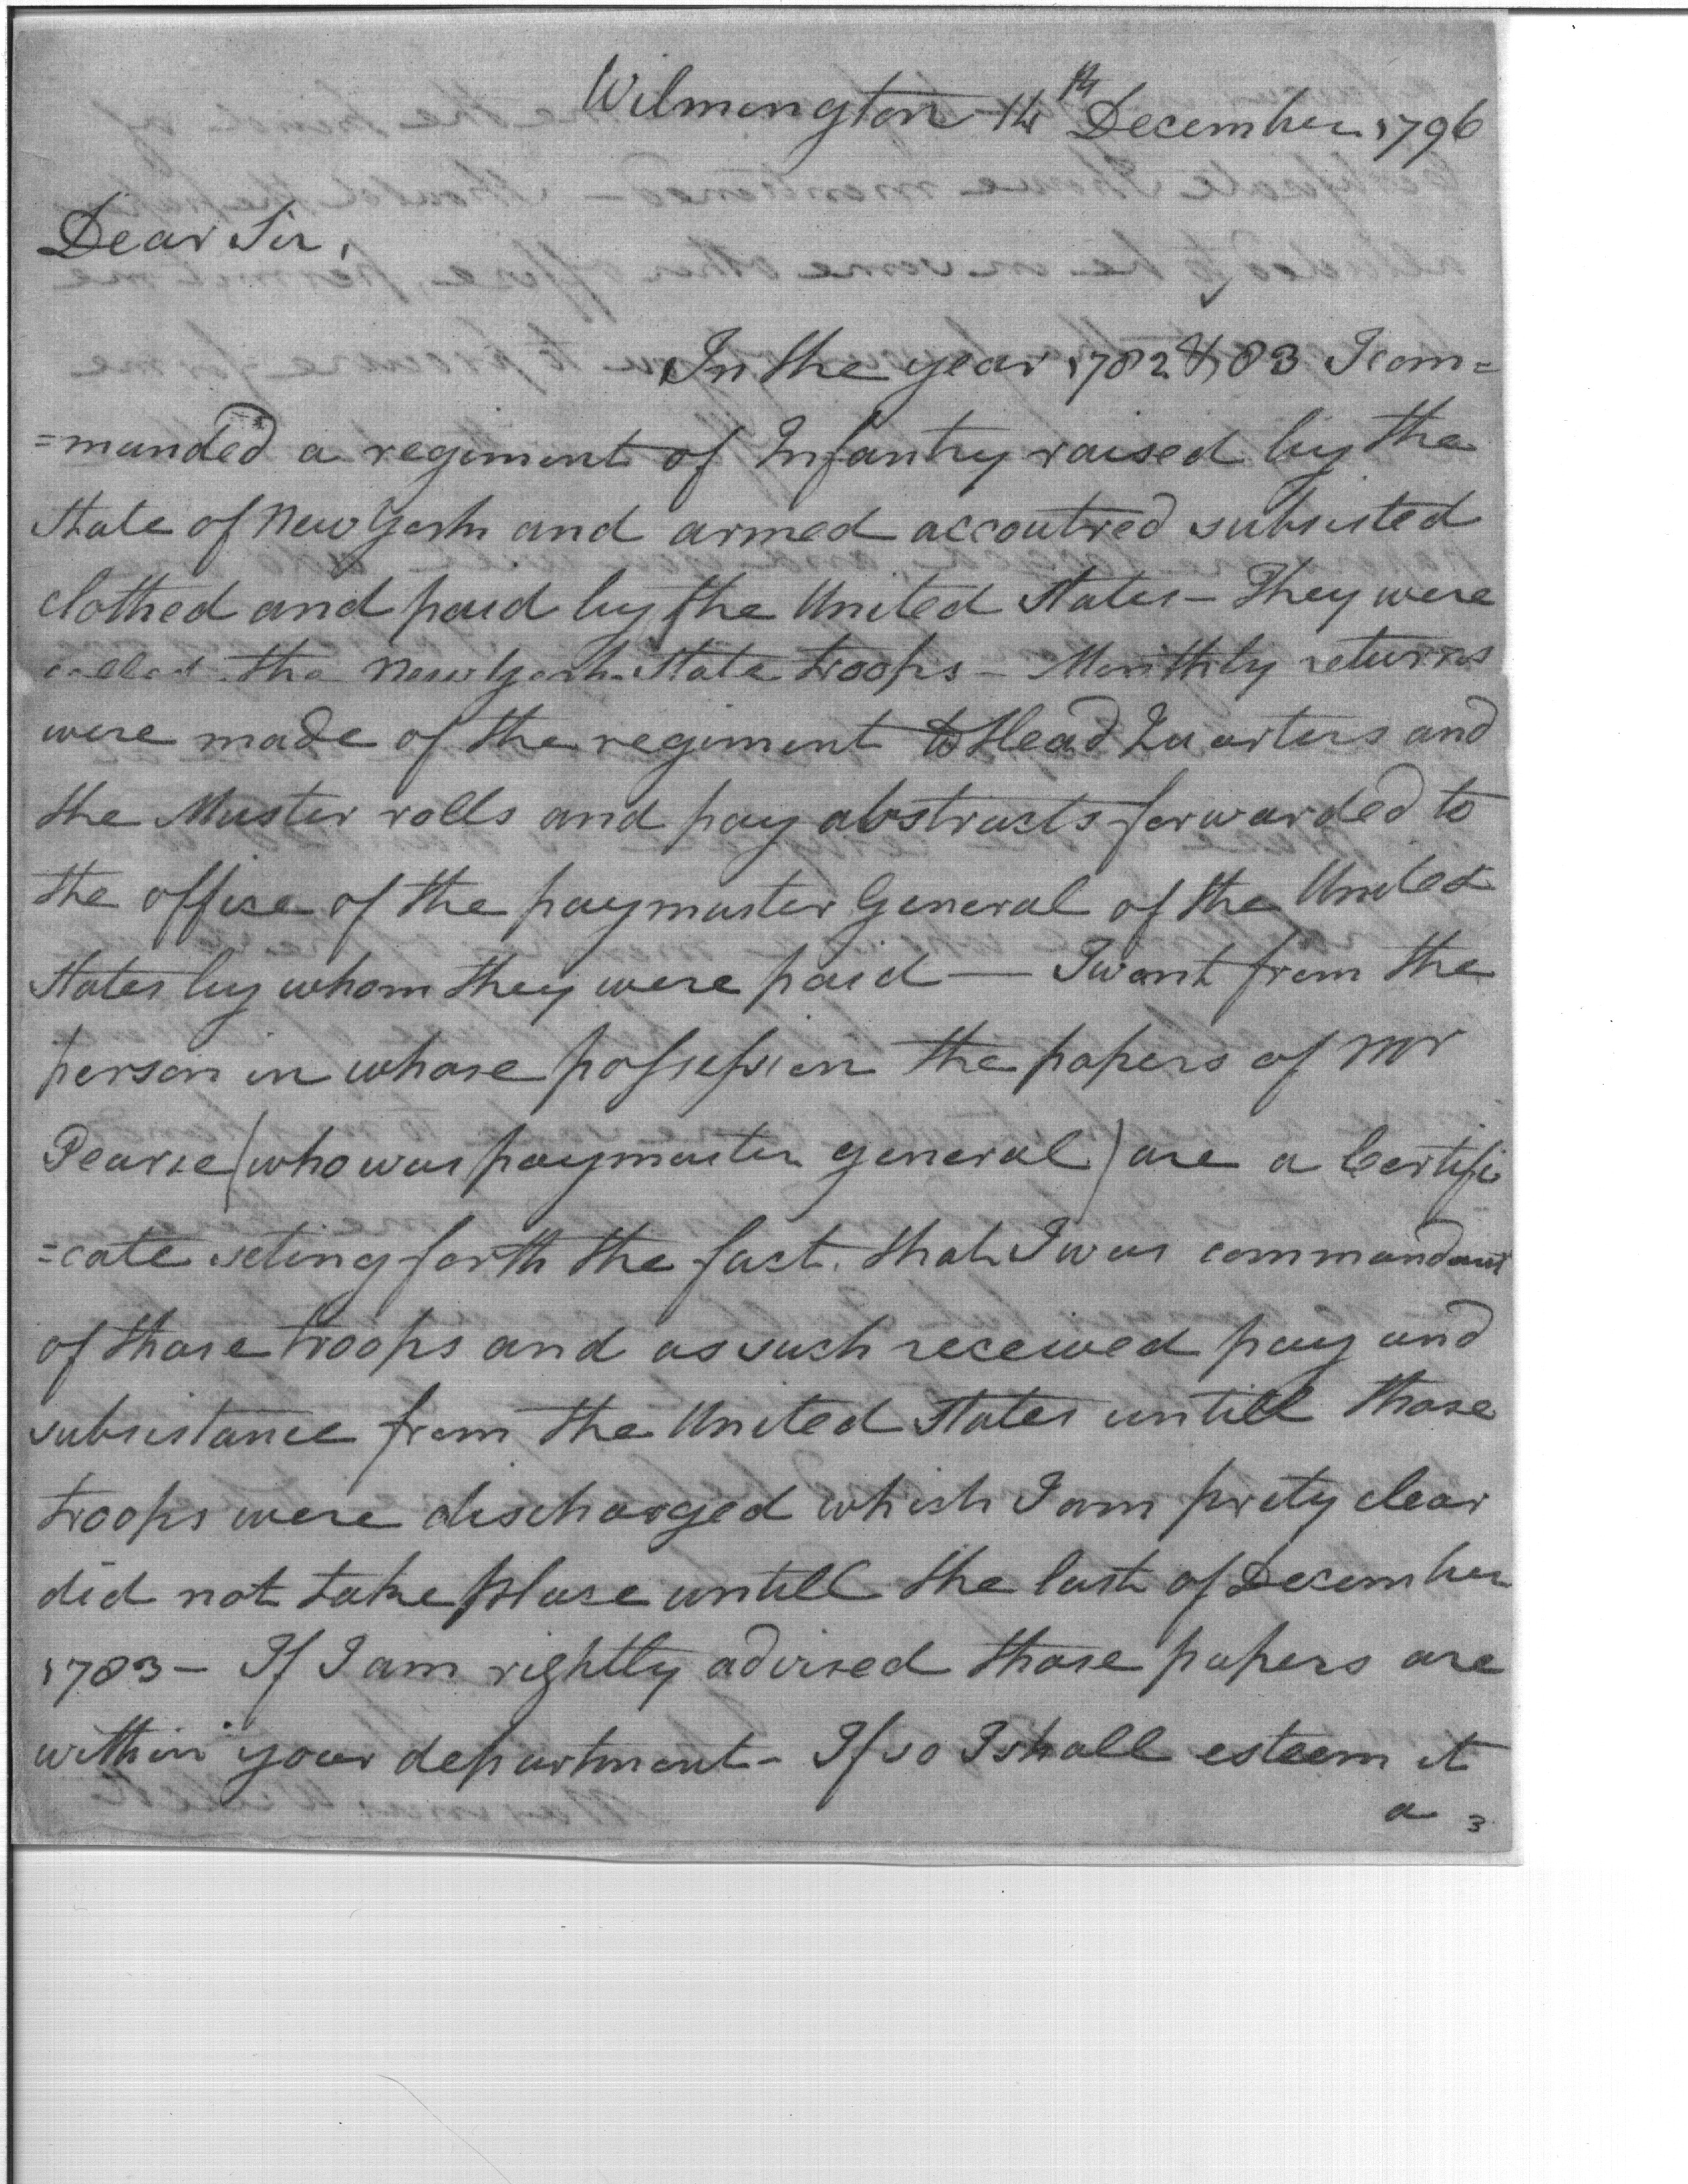 Wilmington 14th December 1796
Dear Sir,
In the year 1782 & 83 I com=
=manded a regiment of Infantry raised by the
State of New York and armed accoutred subsisted
clothed and paid by the United States - They were
called the New York State troops - Monthly returns
were made of the regiment to Head Quarters and
the Muster rolls and pay abstracts forwarded to
the office of the paymaster General of the United
States by whom they were paid — I want from the
person in whose possession the papers of Mr
Pearce (who was paymaster general) are a Certifi
=cate seting forth the fact. that I was commandant
of those troops and as such received pay and
subsistance from the United States untill those
troops were discharged which I am prety clear
did not take place untill the last of December
1783 - If I am rightly advised those papers are
within your department - If so I shall esteem it
a 3